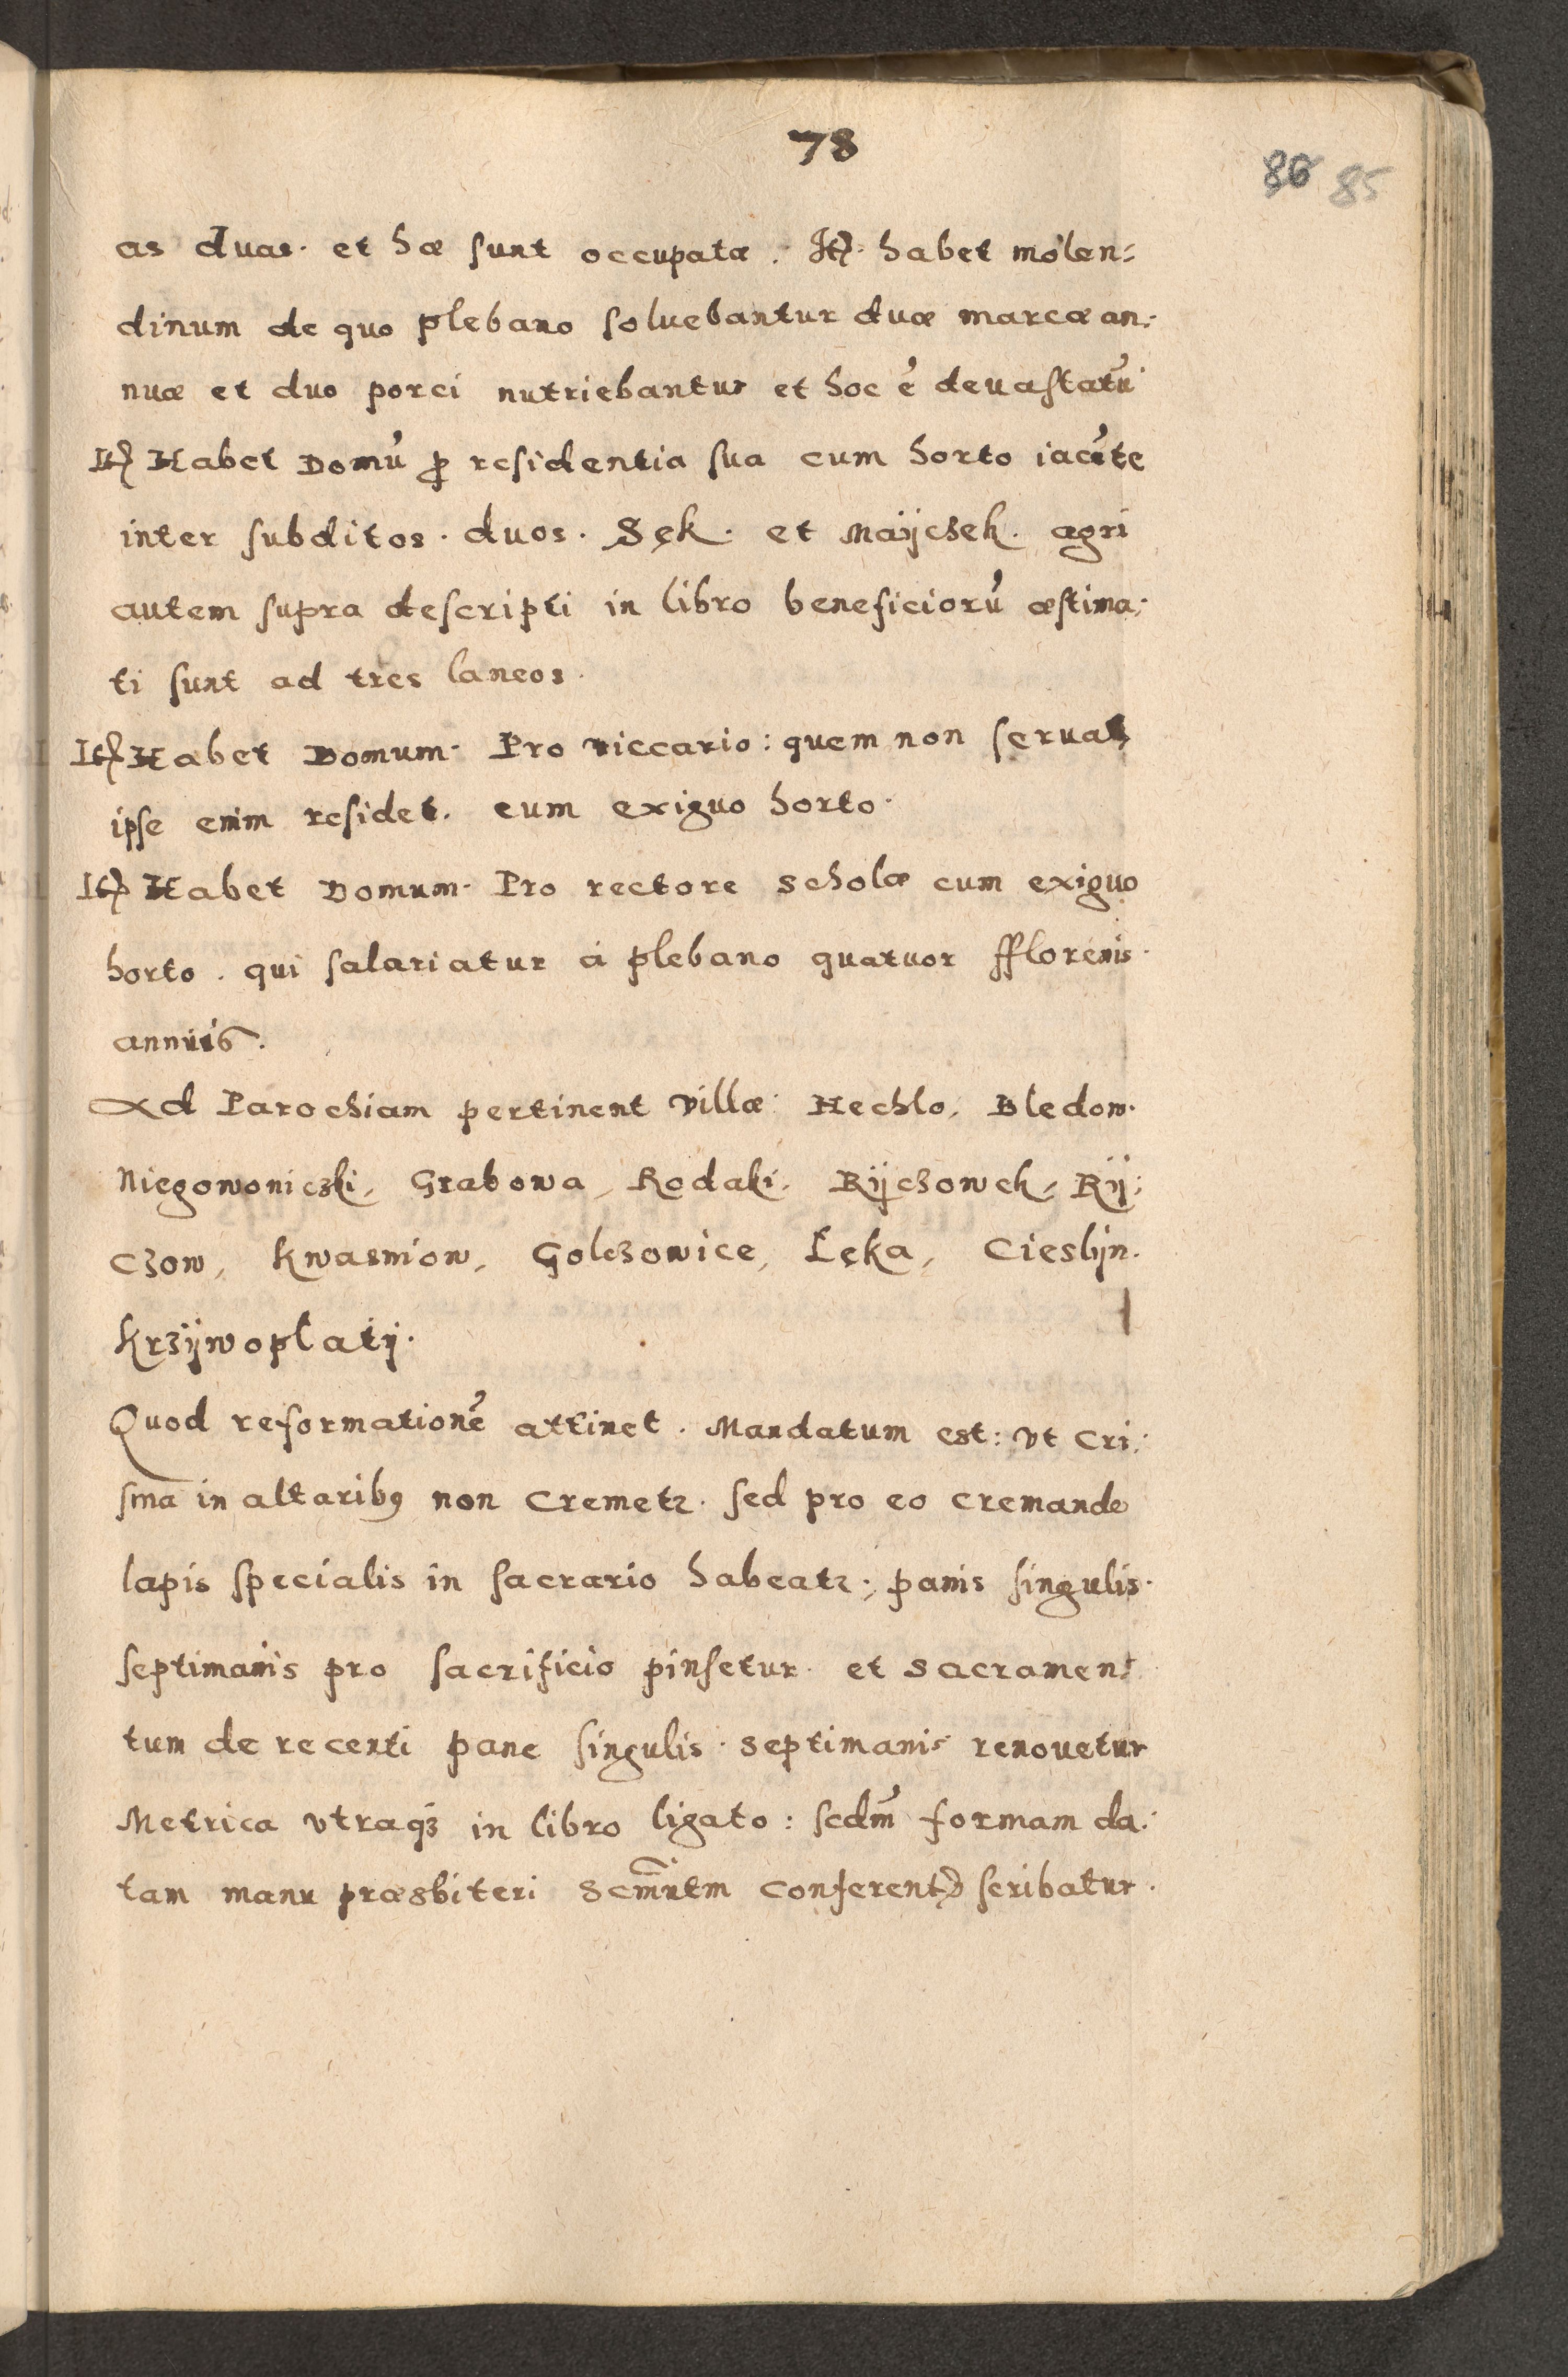 78
86 85
as duas. et hæ sunt occupatæ. Itē. habet molen:
dinum de quo plebano soluebantur duæ marcæ an:
nuæ et duo porci nutriebantur et hoc ē deuastatū
Itē Habet Domū ꝓ residentia sua cum horto iacēte
inter subditos. duos. Sęk. et Maÿczek. agri
autem supra descripti in libro beneficiorū æstima:
ti sunt ad tres laneos.
Itē Habet Domum. Pro viccario: quem non seruat,
ipse enim residet. cum exiguo horto.
Itē Habet Domum. Pro rectore scholæ cum exiguo
horto. qui salariatur á plebano quatuor fflorenis.
annuis.
Ad Parochiam pertinent villæ: Hechlo, Bledow.
Niegowoniczki, Grabowa, Rodaki, Rÿczowek, Rÿ:
czow, Kwasniow, Golczowice, Łęka, Cieslÿn.
Krzÿwoplatÿ.
Quod reformationē attinet. Mandatum est: vt Cri:
sma in altaribꝯ non Cremetꝛ. sed pro eo cremando
lapis specialis in sacrario habeatꝛ; panis singulis.
septimanis pro sacrificio pinsetur. et Sacramen:
tum de recenti pane singulis. septimanis renouetur
Metrica vtraqꝫ in libro ligato: scdm̄ formam da:
tam manu præsbiteri Scm̄ntm conferentꝭ scribatur.